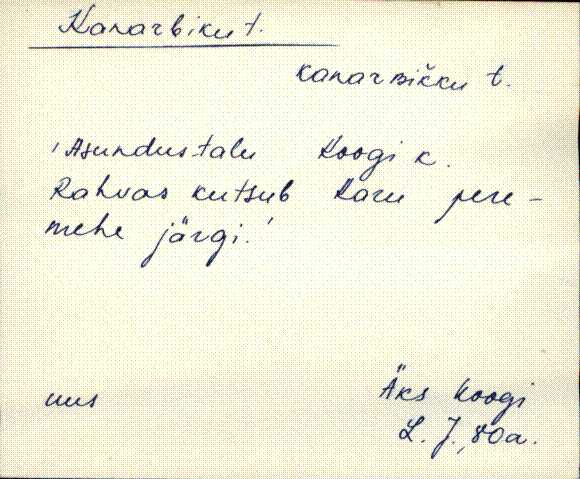 Kanarbiku t.
kanarbikku t.
'Asundustalu Koogi k.
Rahvas kutsub Karu pere-
mehe järgi.'
uus
Äks Koogi
L. J., 80a.